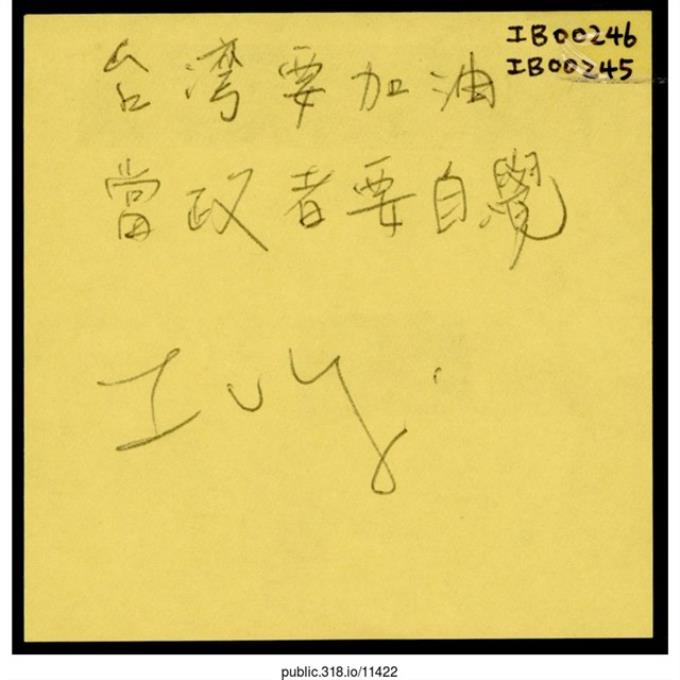 IB00246
IB00245
台湾要加油
當政者要自覺
Ivy.
public.318.io/11422